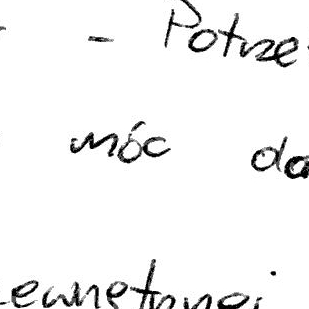 - Potrze
móc do
ewnętrznej